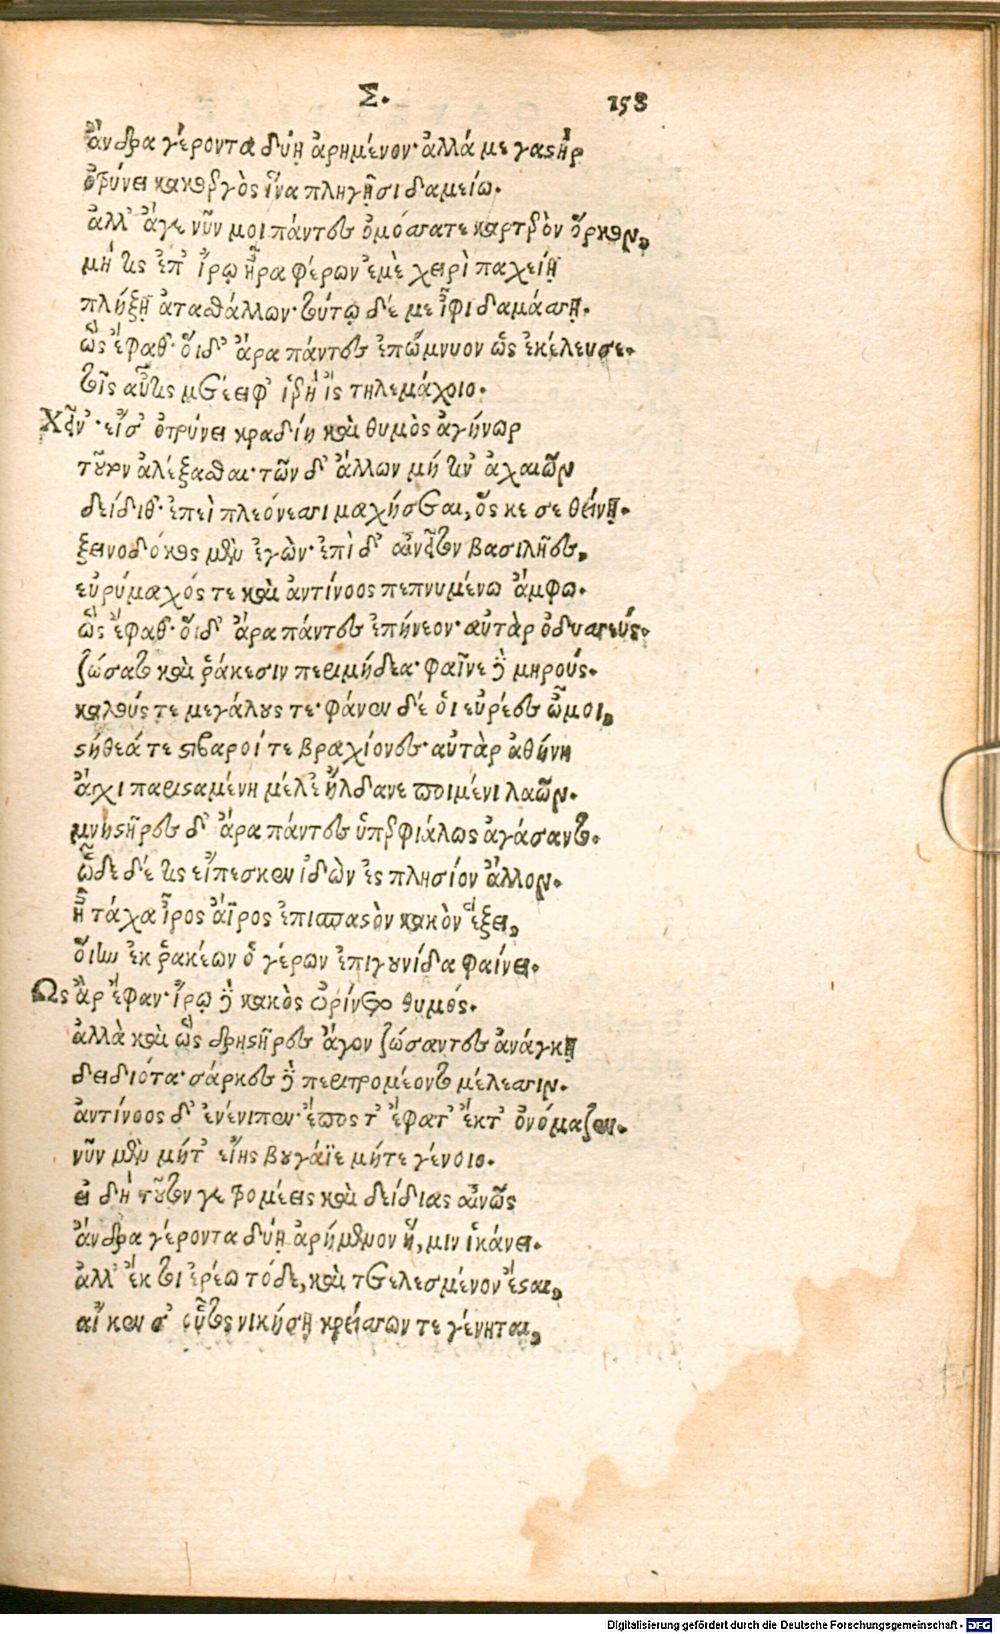 Σ. 158
ἄνδρα γέροντα δύῃ ἀρημένον· ἀλλά με γαστὴρ
ὀτρύνει κακοεργὸς ἵνα πληγῇσι δαμείω.
ἀλλ' ἄγε νῦν μοι πάντες ὀμόσσατε καρτερὸν ὅρκον,
μή τις ἐπ' ἴρῳ ἦρα φέρων ἐμὲ χειρὶ παχείῃ
πλήξῃ ἀτασθάλλων· τούτῳ δέ με ἶφι δαμάσσῃ.
ὣς ἔφαθ'· οἵ δ' ἄρα πάντες ἐπώμνυον ὡς ἐκέλευσε.
τοῖς αὖτις μετέειφ' ἱερὴ ἲς τηλεμάχοιο.
Ξεῖν'· εἴ σ' ὀτρύνει κραδίη καὶ θυμὸς ἀγήνωρ
τοῦτον ἀλέξασθαι· τῶν δ' ἄλλων μή τιν' ἀχαιῶν
δείδιθ'· ἐπεὶ πλεόνεσσι μαχήσεται, ὅς κε σε θείνῃ.
ξεινοδόκος μὲν ἐγὼν· ἐπὶ δ' αἰνεῖτον βασιλῆες,
εὐρύμαχός τε καὶ ἀντίνοος πεπνυμένω ἄμφω.
ὣς ἔφαθ'· οἵ δ' ἄρα πάντες ἐπήνεον· αὐτὰρ ὀδυσσεύς.
ζώσατο καὶ ῥάκεσιν περὶ μήδεα· φαῖνε δὲ μηρούς.
καλούς τε μεγάλους τε· φάνεν δέ οἱ εὐρέες ὦμοι,
στήθεά τε στιβαροί τε βραχίονες· αὐτὰρ ἀθήνη
ἄγχι παρισταμένη μέλε' ἤλδανε ποιμένι λαῶν.
μνηστῆρες δ' ἄρα πάντες ὑπερφιάλως ἀγάσαντο.
ὧδε δέ τις εἴπεσκεν ἰδὼν ἐς πλησίον ἄλλον.
ἦ τάχα ἶρος ἄϊρος ἐπίσπαστον κακὸν ἕξει,
οἵην ἐκ ῥακέων ὁ γέρων ἐπιγουνίδα φαίνει.
Ως ἂρ ἔφαν· ἴρῳ δὲ κακὸς ὠρίνετο θυμός.
ἀλλὰ καὶ ὣς δρηστῆρες ἄγον ζώσαντες ἀνάγκῃ
δειδιότα· σάρκες δὲ περιτρομέοντο μέλεσσιν.
ἀντίνοος δ' ἐνένιπεν· ἔπος τ' ἔφατ' ἔκ τ' ὀνόμαζεν.
νῦν μὲν μήτ' εἴης βουγάϊε μήτε γένοιο.
εἰ δὴ τοῦτον γε τρομέεις καὶ δείδιας αἰνῶς
ἄνδρα γέροντα δύῃ ἀρήμενον ἥ, μιν ἱκάνει.
ἀλλ' ἔκ τοι ἐρέω τόδε, καὶ τετελεσμένον ἔσται,
αἴ κεν σ' οὗτος νικήσῃ κρείσσων τε γένηται,
Digitalisierung gefördert durch die Deutsche Forschungsgemeinschaft - DFG